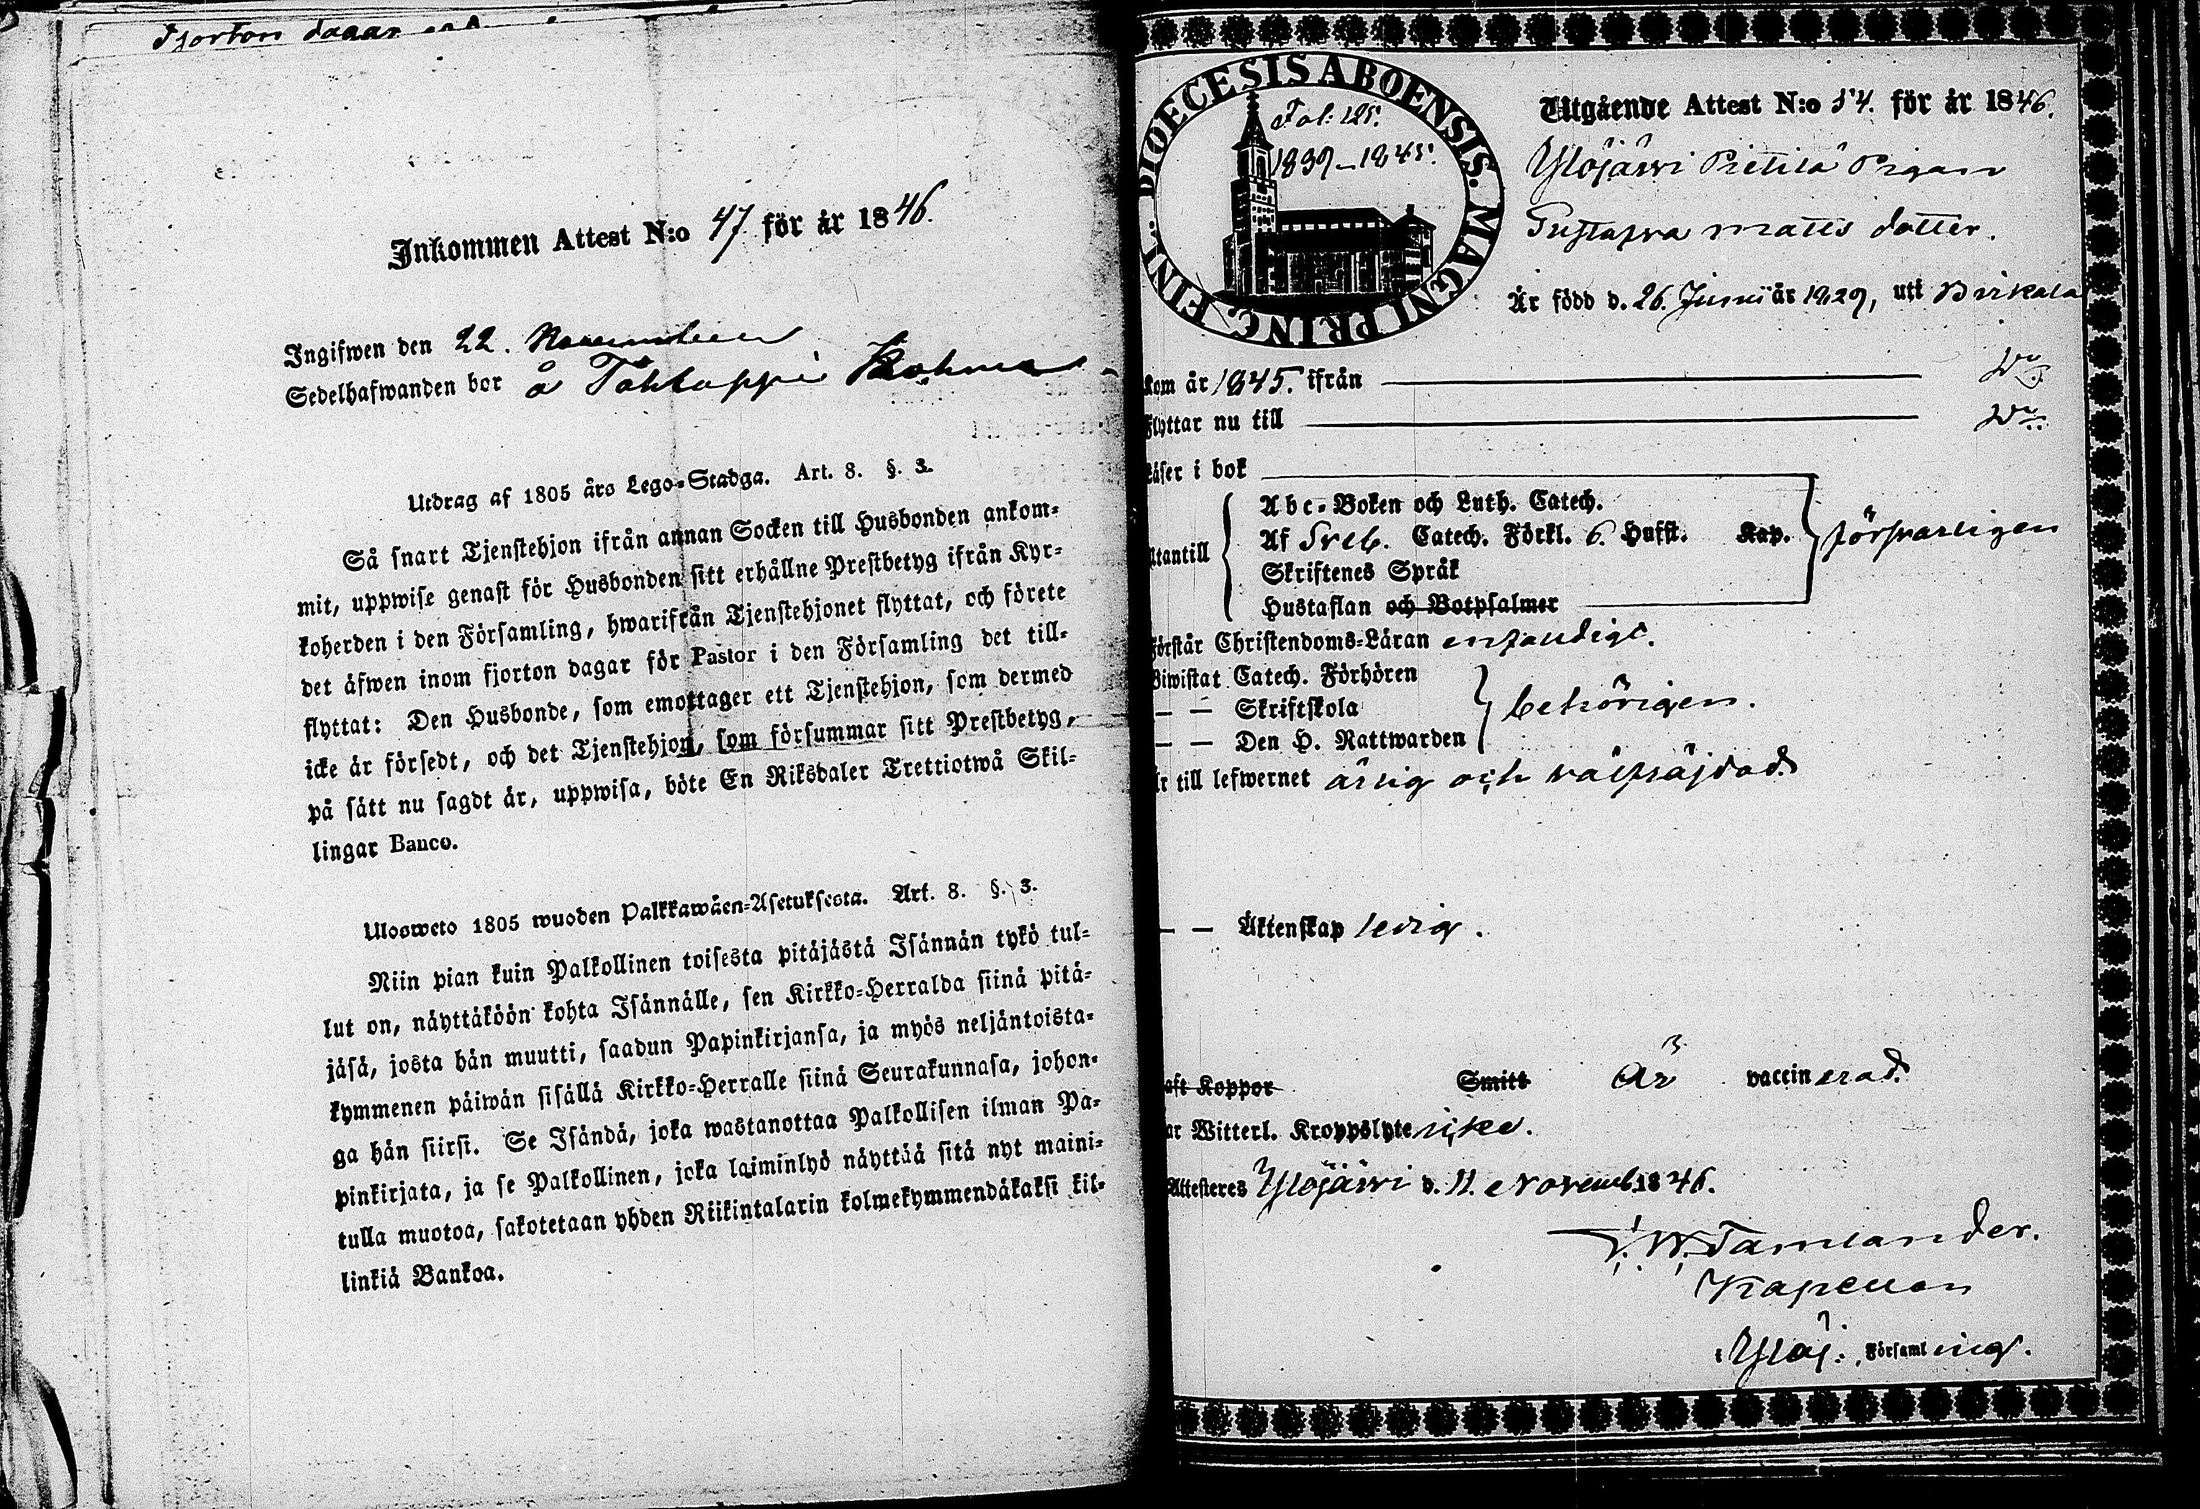 Fjorton dagar
Inkommen Attest N:o 47 för år 1846.
Ingifwen den 22. November
Sedelhafwanden bor å Tohloppi
Utdrag af 1805 års Lego-Stadga. Art. 8. §. 3.
Så snart Tjenstehjon ifrån annan Socken till Husbonden ankom-
mit, uppwise genast för Husbonden sitt erhållne Prestbetyg ifrån Kyr-
koherden i den Församling, hwarifrån Tjenstehjonet flyttat, och förete
det äfwen inom fjorton dagar för Pastor i den Församling det till-
flyttat: Den Husbonde, som emottager ett Tjenstehjon, som dermed
icke är försedt, och det Tjenstehjon, som försummar sitt Prestbetyg,
på sätt nu sagdt är, uppwisa, böte En Riksdaler Trettiotwå Skil-
lingar Banco.
Ulosweto 1805 wuoden Palkkawäen-Asetuksesta. Art. 8. §. 3.
Niin pian kuin Palkollinen toisesta pitäjästä Isännän tykö tul-
lut on, näyttäköön kohta Isännälle, sen Kirkko-Herralda siinä pitä-
jäsä, josta hän muutti, saadun Papinkirjansa, ja myös neljäntoista-
kymmenen päiwän sisällä Kirkko-Herralle siinä Seurakunnasa, johon-
ga hän siirsi. Se Isändä, joka wastanottaa Palkollisen ilman Pa-
pinkirjata, ja se Palkollinen, joka laiminlyö näyttää sitä nyt maini-
tulla muotoa, sakotetaan yhden Riikintalarin kolmekymmendäkaksi kil-
linkiä Bankoa.
DIOECESIS ABOENSIS. MAGNI PRINC. FINL.
Fol: 125.
1839-1845.
Utgående Attest N:o 54. för år 1846.
Ylöjärvi Pietilä Pigan
Gustafva Matts dotter.
Är född d. 26. Junii år 1829, uti Birkala
kom år 1845. ifrån
Flyttar nu till
Läser i bok
Utantill
Abc-Boken och Luth. Catech.
Af Sveb. Catech. Förkl. 6. Hufst. Kap.
Skriftenes Språk
Hustaflan och Botpsalmer
försvarligen
Förstår Christendoms-Läran enfaudigt.
Biwistat Catech. Förhören
— — Skriftskola
— — Den H. Nattwarden
behörigen.
är till lefwernet ärlig och välfräjdad.
— — Äktenskap ledig.
haft Koppor Smitt Är vaccinerad.
har Witterl. Kroppslyte icke.
Attesteres Ylöjärvi d. 11. Novemb. 1846.
Tamlander.
Kapellan
i Ylöj: Församling.